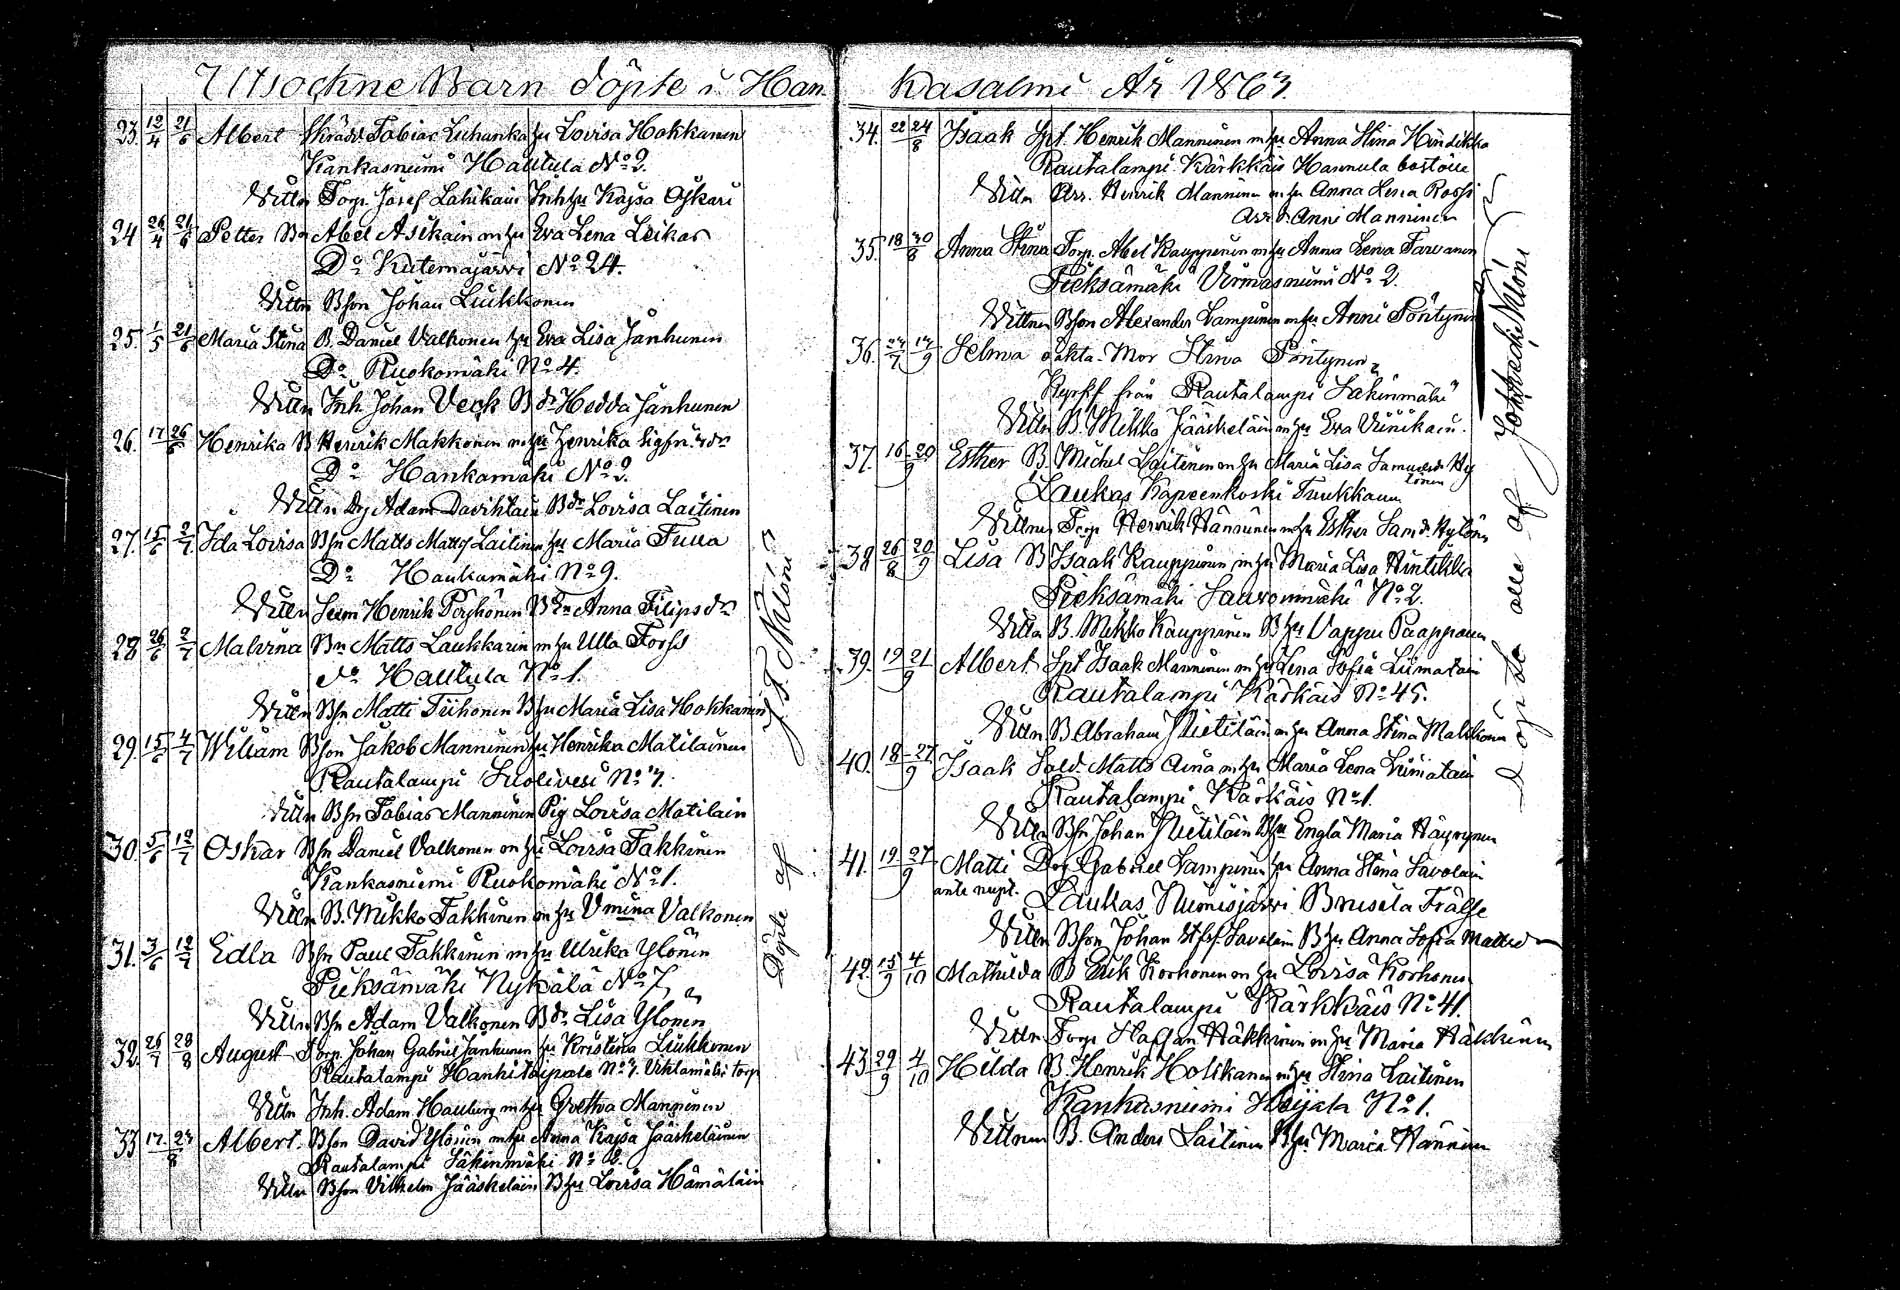 Utsockne Barn döpte i Han
23. 12/4 21/6 Albert Skrädd. Tobias Luhanka hu Lovisa Hokkanen
Kankasniemi Hautula No 2.
Vittn Torp. Josef Lahikain Inh hu Kajsa Ojkari
24 26/4 21/6 Petter Bn Abel Asikain o hu Eva Lena Leikas
Do Kutemajärvi No 24.
Vittn Bson Johan Liukkonen
25. 1/5 21/6 Maria Stina B. Daniel Valkonen hu Eva Lisa Janhunen
Do Ruokomäki No 4.
Vittn Inh Johan Veck B dr Hedda Janhunen
26. 17 26/6 Henrika B Henrik Makkonen m hu Henrika Sigfrids dr
Do Hankamäki No 2.
Vittn Dg Adam Davihlain B dr Lovisa Laitinen
27. 15/6 2/7 Ida Lovisa Bn Matts Matts Laitinen hu Maria Tuua
Do Haukamäki No 9.
Vittn Henrik Pöyhönen B Anna Filips dr
28 26/6 2/7 Malvina Bn Matts Laukkarin m hu Ulla Forss
do Hautula No 1.
Vittn Bn Matti Tiihonen B hu Maria Lisa Hokkanen
29. 15/6 4/7 William Bson Jakob Manninen hu Henrika Matilainen
Rautalampi Suolivesi No 7.
Vittn Bn Tobias Manninen Pig Lovisa Matilain
30. 5/6 12/7 Oskar Bn Daniel Valkonen m hu Lovisa Takkinen
Kankasniemi Ruokomäki No 1.
Vittn B. Mikko Takkinen m hu Vmina Valkonen
31. 3/6 12/7 Edla Bn Paul Takkinen m hu Ulrika Ylönen
Pieksämäki Nykälä No 7
Vittn Bn Adam Valkonen B dr Lisa Ylönen
32. 26/7 28/8 August Torp. Johan Gabriel Janhunen hu Kristina Liukkonen
Rautalampi Hankitaipale No 7. torp
Vittn Inh. Adam Hauberg m hu Gretha Manninen
33 17 23/8 Albert. Bson David Ylönen m hu Anna Kajsa Jääskeläinen
Rautalampi Säkinmäki No 2.
Vittn Bson Vilhelm Jääskeläin B hu Lovisa Hämäläin
Döpte af J. F. Nikloni
kasalmi År 1863.
34. 22 24/8 Isaak Spt. Henrik Manninen m hu Anna Stina Hindikka
Rautalampi Kärkkäis Hannula boställe
Vittn Arr. Henrik Manninen m hu Anna Lena Rossi
Arr d Anni Manninen
35. 18 30/8 Anna Stina Torp. Abel Kauppinen m hu Anna Lena Tarvanen
Pieksämäki Virmasniemi No 2.
Vittnen Bson Alexander Lampinen m hu Anni Pöntynen
36. 27/7 17/9 Selma oäkta. Mor Stina Pöntynen
från Rautalampi Säkinmäki
Vittn B. Mikko Jääskeläin m hu Eva Viinikain.
37. 16 20/9 Esther B. Michel Laitinen m hu Maria Lisa Samuels dr Hy
lönen
Laukas Kapeenkoski Tuukkanen
Vittnen Torp Henrik Hänninen m hu Esther Sam dr Hylönen
38 26/8 20/9 Lisa B Isaak Kauppinen m hu Maria Lisa Hintikka
Pieksämäki No 2.
Vittn B. Mikko Kauppinen B hu Vappu Paappanen
39. 19 21/9 Albert Spt Isaak Manninen m hu Lena Sofia Liimatain
Rautalampi Kärkäis No 45.
Vittn B Abraham Nietiläin m hu Anna Stina Malikain
40. 18 27/9 Isaak Sold. Matts Aina m hu Maria Lena Liimatain
Rautalampi Kärkäis No 1.
Vittn Bn Johan Nietiläin B hu Engla Maria Häyrynen
41. 19 27/9 Matti Dg Gabriel Lampinen hu Anna Stina Savolain
ante nupt. Laukas Niemisjärvi Brusila Frälse
Vittn Bson Johan Savolain B hu Anna Sofia Matts dr
42. 15/9 4/10 Mathilda B. Erik Korhonen m hu Lovisa Korhonen
Rautalampi Kärkkäis No 41.
Vittn Torp Staffan Häkkinen m hu Maria Häkkinen
43 29/9 4/10 Hilda B. Henrik Holikanen m hu Stina Laitinen
Kankasniemi No 1.
Vittnen B. Anders Laitinen B hu Maria Hänninen
Döpte alla af Nikloni